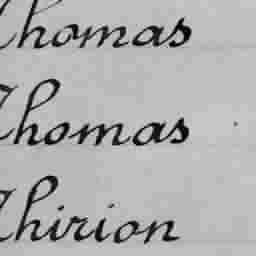 Thomas
Thomas
Thirion